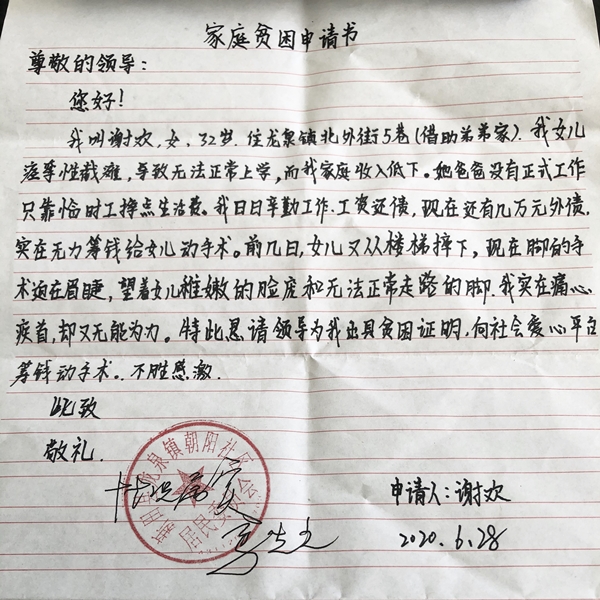 家庭贫困申请书
尊敬的领导：
您好！
我叫谢欢，女，32岁．住龙泉镇北外街5巷(借助弟弟家)．我女儿
痉挛性截瘫，导致无法正常上学，而我家庭收入低下。她爸爸没有正式工作
只靠恰时工挣点生活费。我日日辛勤工作．工资还债，现在还有几万元外债，
实在无力筹钱给女儿动手术。前几日，女儿又从楼梯摔下，现在脚的手
术迫在眉睫，望着女儿稚嫩的脸庞和无法正常走路的脚．我实在痛心
疾首，却又无能为力。特此恳请领导为我出具贫困证明，向社会爱心平台
筹钱动手术。．不胜感激．
此致
敬礼．
龙泉镇朝阳社区
居民委员会
情况属实
申请人：谢欢
2020.6.28